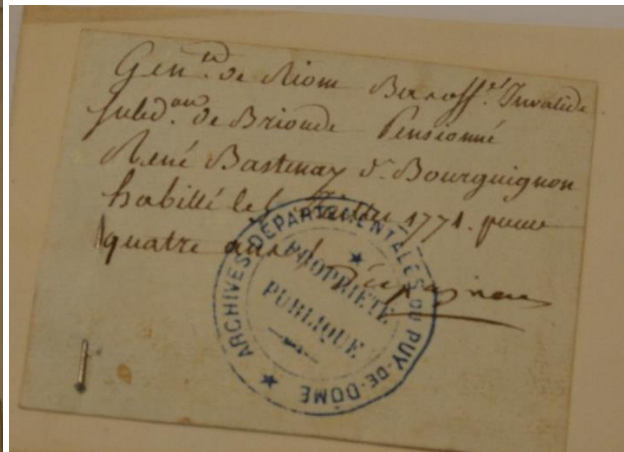 Gén.té de Riom Bas off.er Invalide
Subd.on de Brioude Pensionné
René Bastenay d. Bourguignon
habillé le 1771. pour
quatre ans
ARCHIVES DÉPARTEMENTALES DU PUY-DE-DÔME
PROPRIÉTÉ
PUBLIQUE